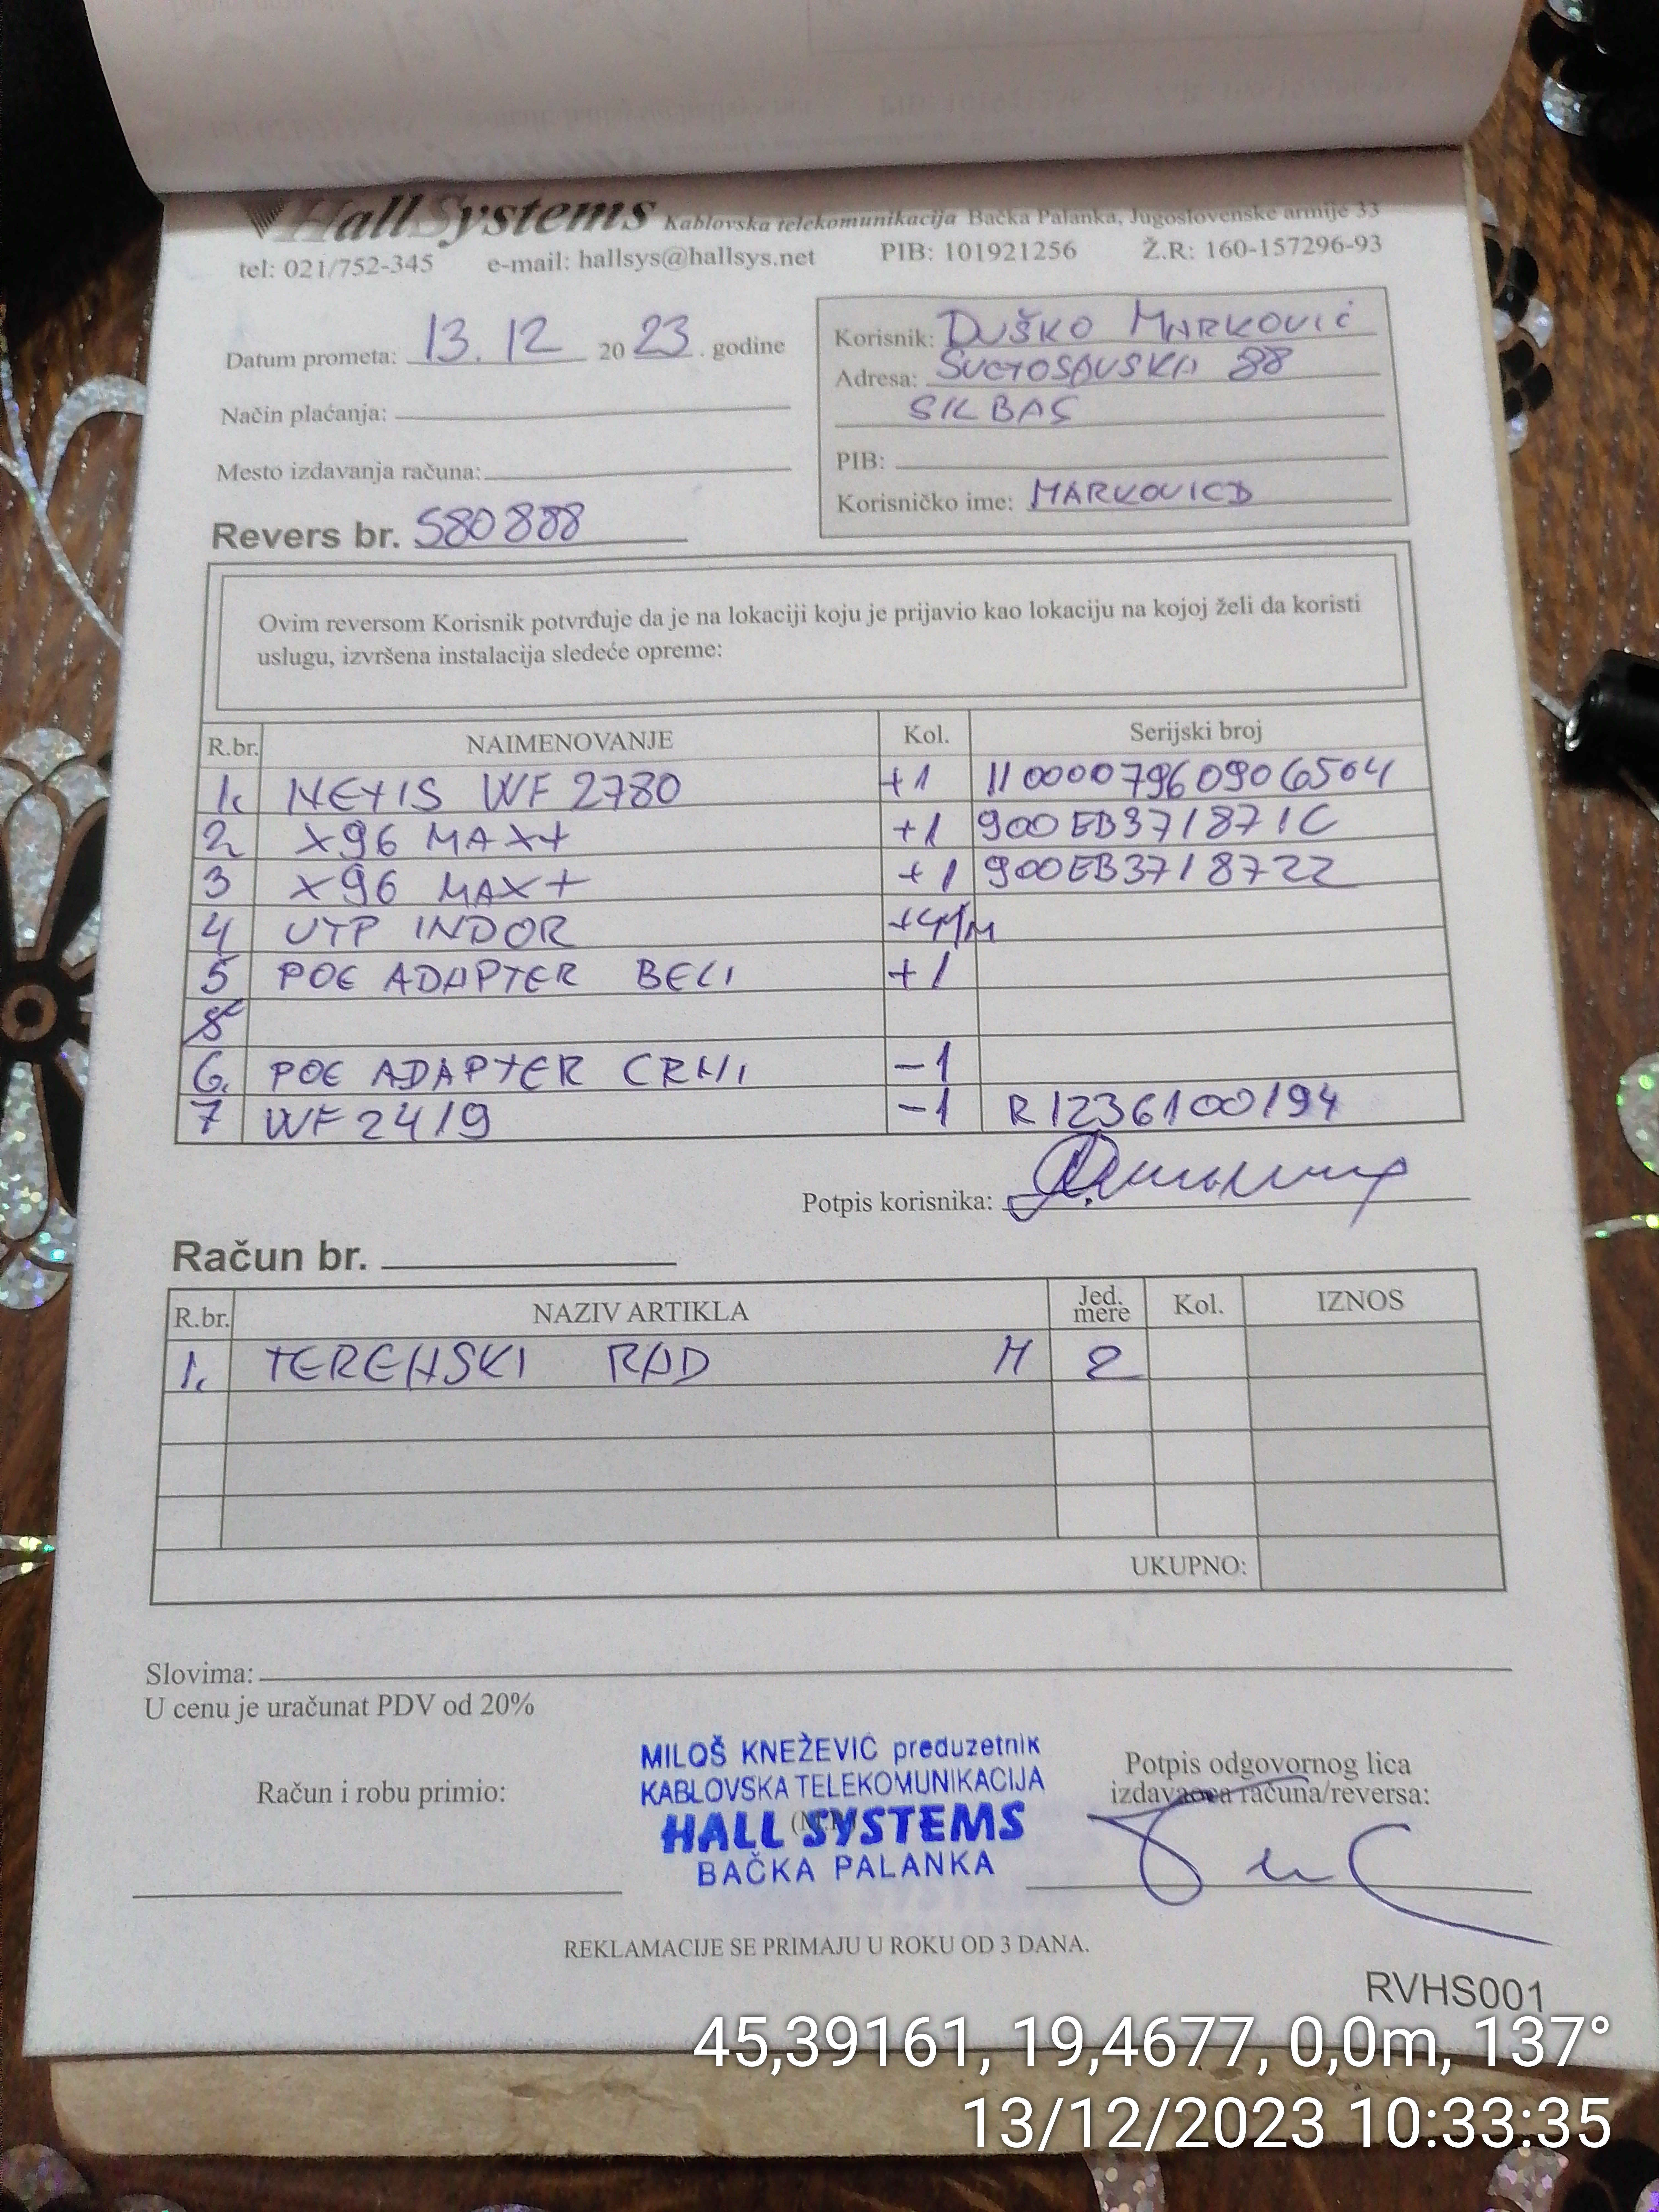 Hall Systems Kablovska telekomunikacija Bačka Palanka, Jugoslovenske armije 33
tel: 021/752-345 e-mail: hallsys@hallsys.net PIB: 101921256 Ž.R: 160-157296-93
Datum prometa: 13. 12 20 23. godine
Način plaćanja:
Mesto izdavanja računa:
Revers br. 580888
Korisnik: DUŠKO MARKOVIĆ
Adresa: SVETOSAVSKA 88
SILBAŠ
PIB:
Korisničko ime: MARKOVICD
Ovim reversom Korisnik potvrđuje da je na lokaciji koju je prijavio kao lokaciju na kojoj želi da koristi
uslugu, izvršena instalacija sledeće opreme:
R.br. NAIMENOVANJE Kol. Serijski broj
1. NETIS WF 2780 +1 1100007960906504
2 X96 MAX+ +1 900EB371871C
3 X96 MAX+ +1 900EB3718722
4 UTP INDOR
5 POE ADAPTER BELI +1
6. POE ADAPTER CRNI -1
7 WF2419 -1 R1236100194
Potpis korisnika:
Račun br.
R.br. NAZIV ARTIKLA Jed. mere Kol. IZNOS
1. TERENSKI RAD H 2
UKUPNO:
Slovima:
U cenu je uračunat PDV od 20%
Račun i robu primio:
MILOŠ KNEŽEVIĆ preduzetnik
KABLOVSKA TELEKOMUNIKACIJA
HALL SYSTEMS
BAČKA PALANKA
Potpis odgovornog lica
izdavaoca računa/reversa:
REKLAMACIJE SE PRIMAJU U ROKU OD 3 DANA.
RVHS001
45,39161, 19,4677, 0,0m, 137°
13/12/2023 10:33:35